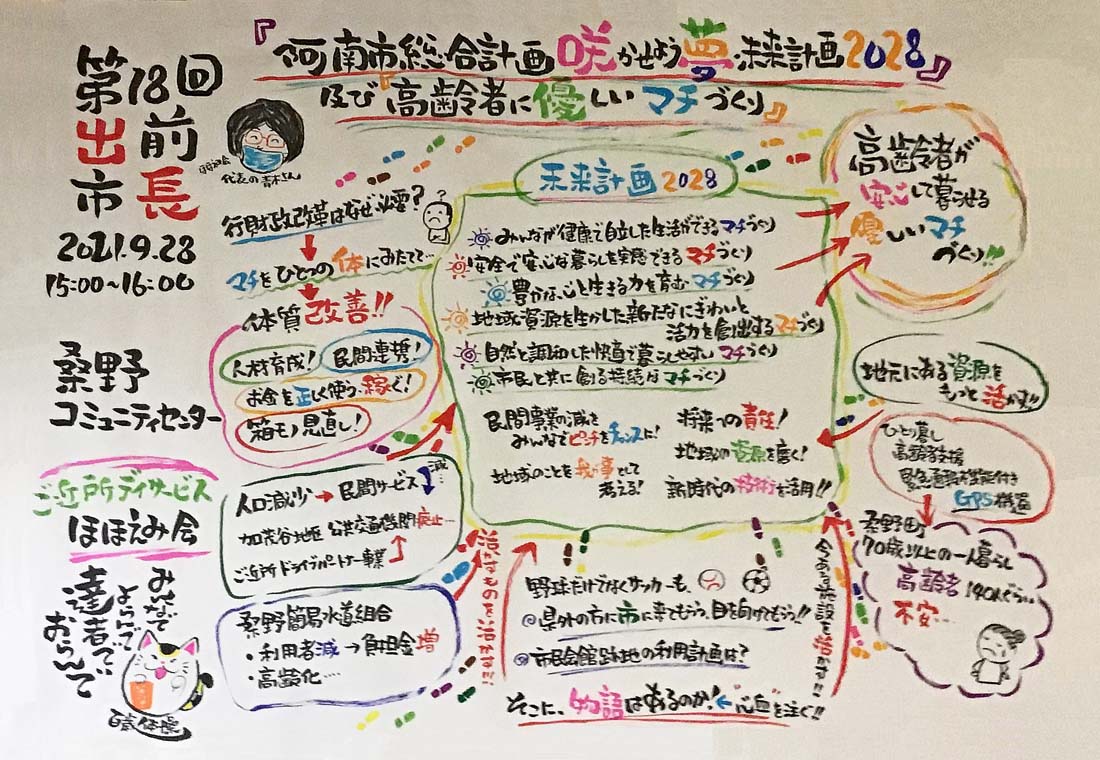 第18回
出前
市長
2021.9.28
15:00~16:00
桑野
コミュニティセンター
ご近所デイサービス
ほほえみ会
みんなで
よろんで
達者で
おらんで
百歳体操
『阿南市総合計画 咲かせよう夢・未来計画2028』
及び『高齢者に優しいマチづくり』
代表の青木さん
行財政改革はなぜ必要?
マチをひとつの体にみたてて…
体質改善!!
人材育成!
民間連携!
お金を正しく使う・稼ぐ!
箱モノ見直し!
人口減少→民間サービス減…
加茂谷地区 公共交通機関廃止…
ご近所ドライブパートナー事業
桑野簡易水道組合
・利用者減→負担金増
・高齢化……
未来計画2028
みんなが健康で自立した生活ができるマチづくり
安全で安心な暮らしを実感できるマチづくり
豊かな心と生きる力を育むマチづくり
地域資源を生かした新たなにぎわいと
活力を創出するマチづくり
自然と調和した快適で暮らしやすいマチづくり
市民と共に創る持続なマチづくり
民間事業の減を
みんなでピンチをチャンスに!
地域のことを我が事として
考える!
将来への責任!
地域の資源を磨く!
新時代の技術を活用!!
高齢者が
安心して暮らせる
優しいマチ
づくり!!
地元にある資源を
もっと活かす!!
ひとり暮し
高齢者支援
緊急通報機能付き
GPS機器
桑野町
70歳以上の一人暮らし
高齢者140人ぐらい
不安…
活かすものを活かす!!
野球だけでなくサッカーも、
◎県外の方に市に来てもらう、目を向けてもらう!!
◎市民会館跡地の利用計画は?
そこに、物語はあるのか!←"心血"を注ぐ!!
今ある施設を活かす!!